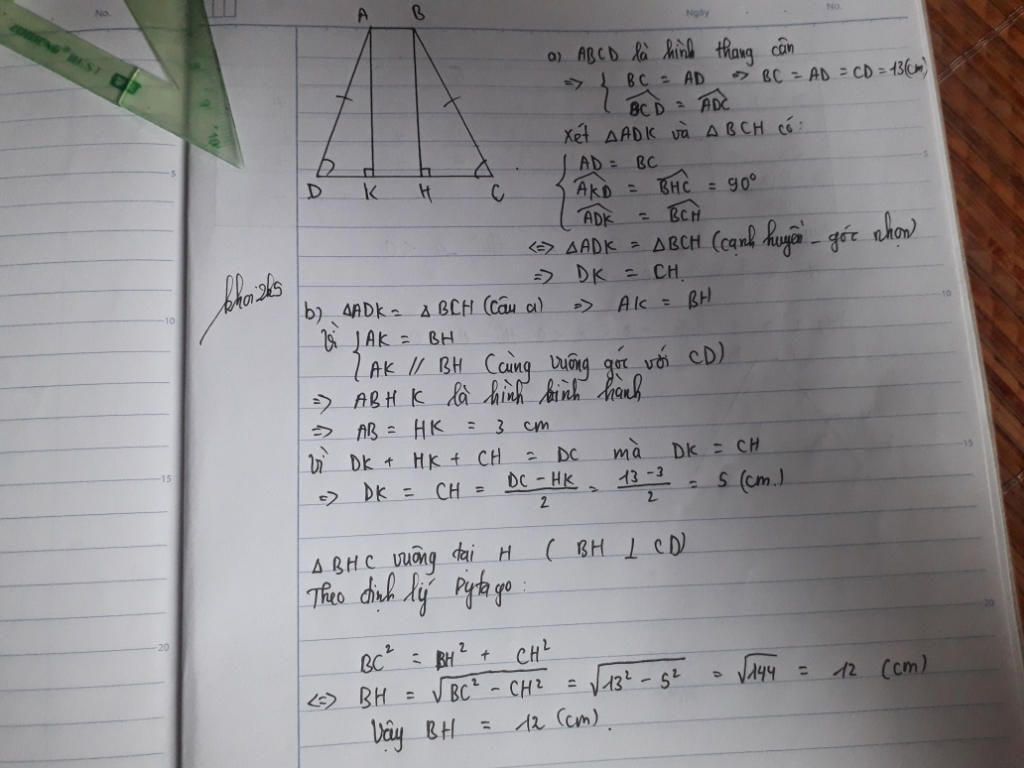 No.
Ngày
No.
A B
D K H C
a) ABCD là hình thang cân
=> { BC = AD => BC = AD = CD = 13(cm)
BCD = ADC
Xét △ADK và △BCH có:
{ AD = BC
AKD = BHC = 90°
ADK = BCH
<=> △ADK = △BCH (cạnh huyền - góc nhọn)
=> DK = CH.
khoi2k5
b) △ADK = △BCH (câu a) => AK = BH
Vì { AK = BH
AK // BH (cùng vuông góc với CD)
=> ABHK là hình bình hành
=> AB = HK = 3 cm
Vì DK + HK + CH = DC mà DK = CH
=> DK = CH = (DC - HK)/2 = (13 - 3)/2 = 5 (cm.)
△BHC vuông tại H ( BH ⊥ CD)
Theo định lý Pytago:
BC² = BH² + CH²
<=> BH = √(BC² - CH²) = √(13² - 5²) = √144 = 12 (cm)
Vậy BH = 12 (cm).
5
10
15
20
5
10
15
20